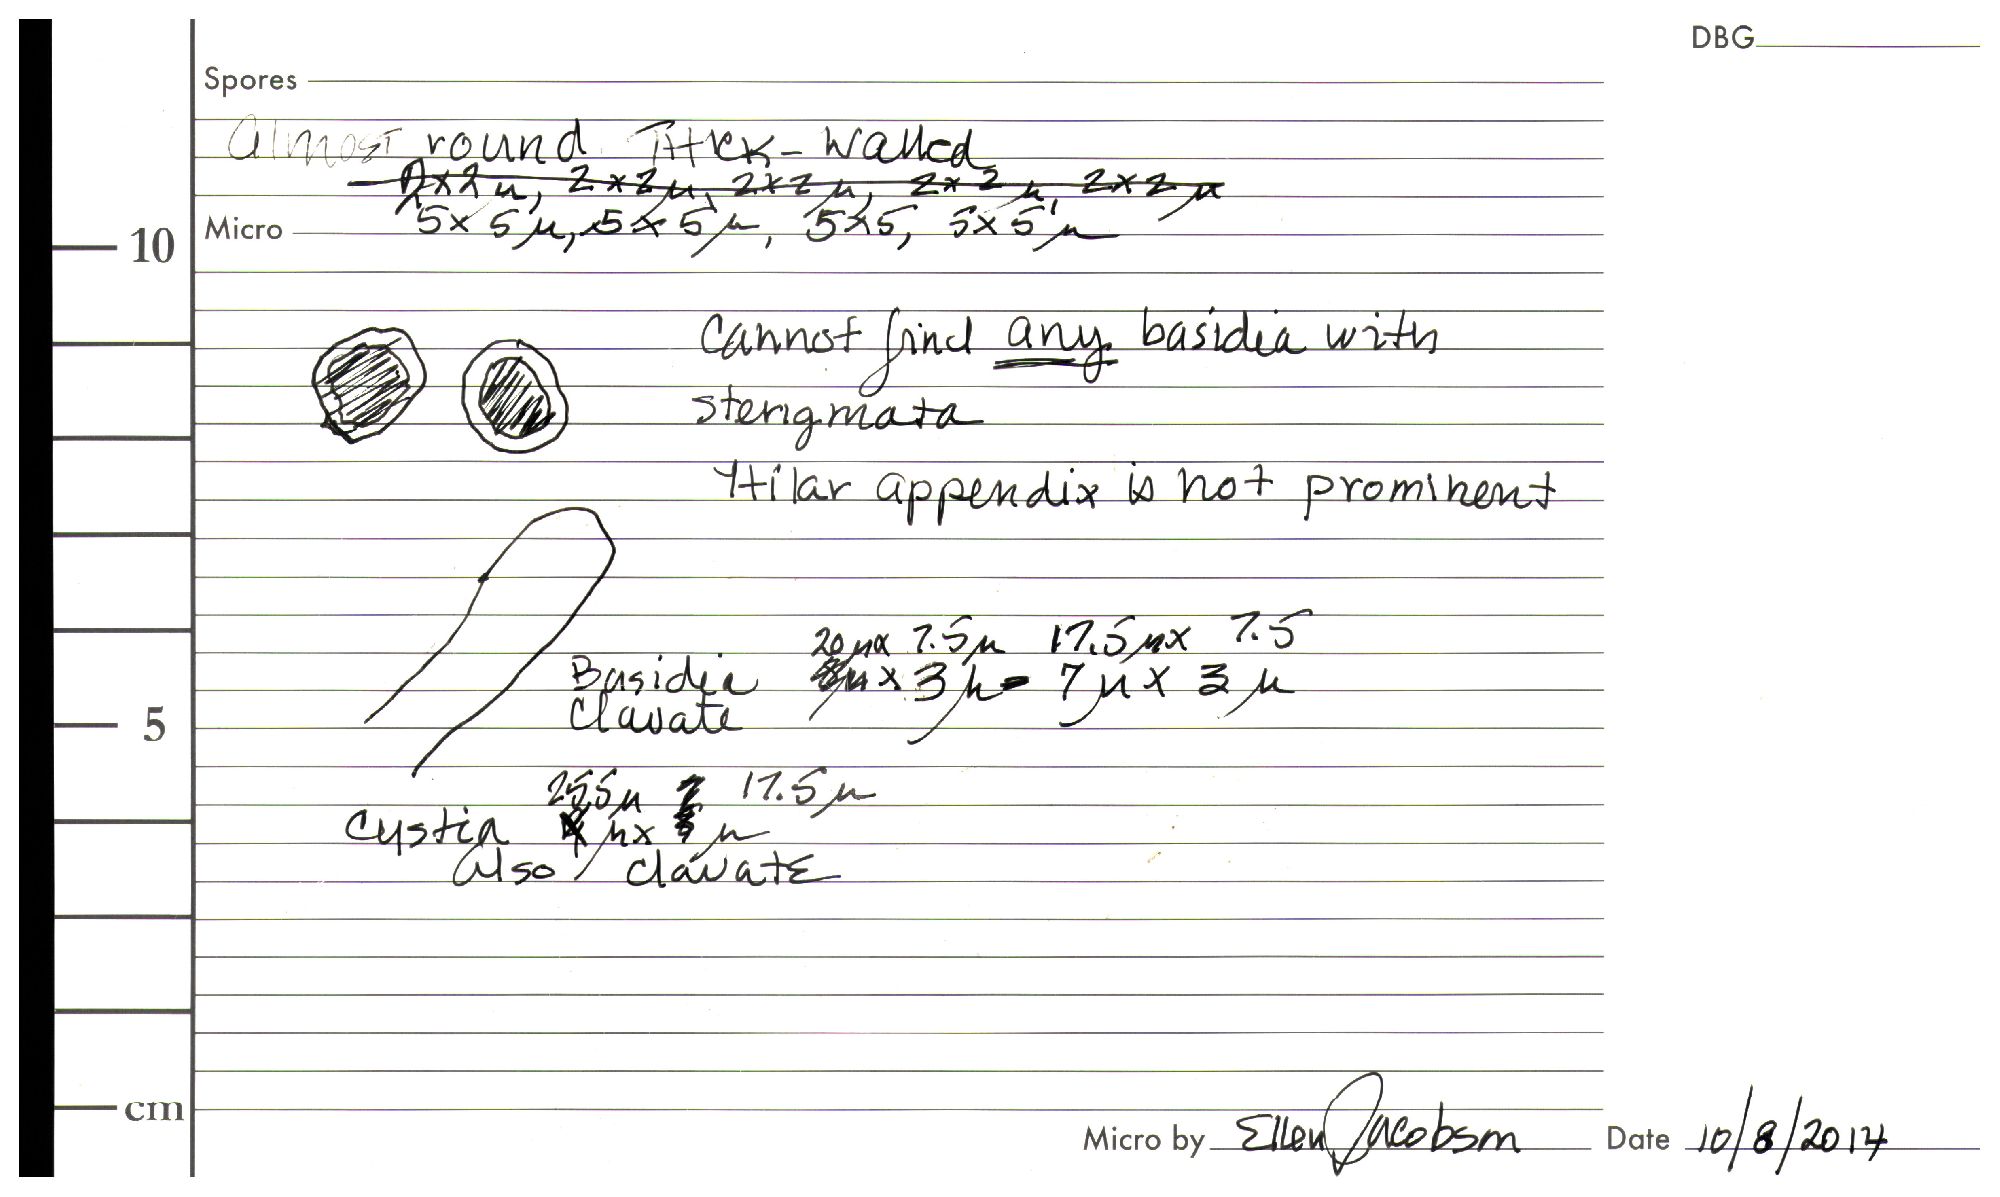 DBG
Spores
Almost round Thick-walled
2x2 µ, 2x2 µ, 2x2 µ, 2x2 µ, 2x2 µ
Micro 5x5 µ, 5x5 µ, 5x5, 5x5 µ
10
Cannot find any basidia with
sterigmata
Hilar appendix is not prominent
20 µ x 7.5 µ 17.5 µ x 7.5
Basidia 8 µ x 3 µ - 7 µ x 3 µ
Clavate
5
17.5 µ
Cystia µ x µ
also clavate
cm
Micro by Ellen Jacobson Date 10/8/2014